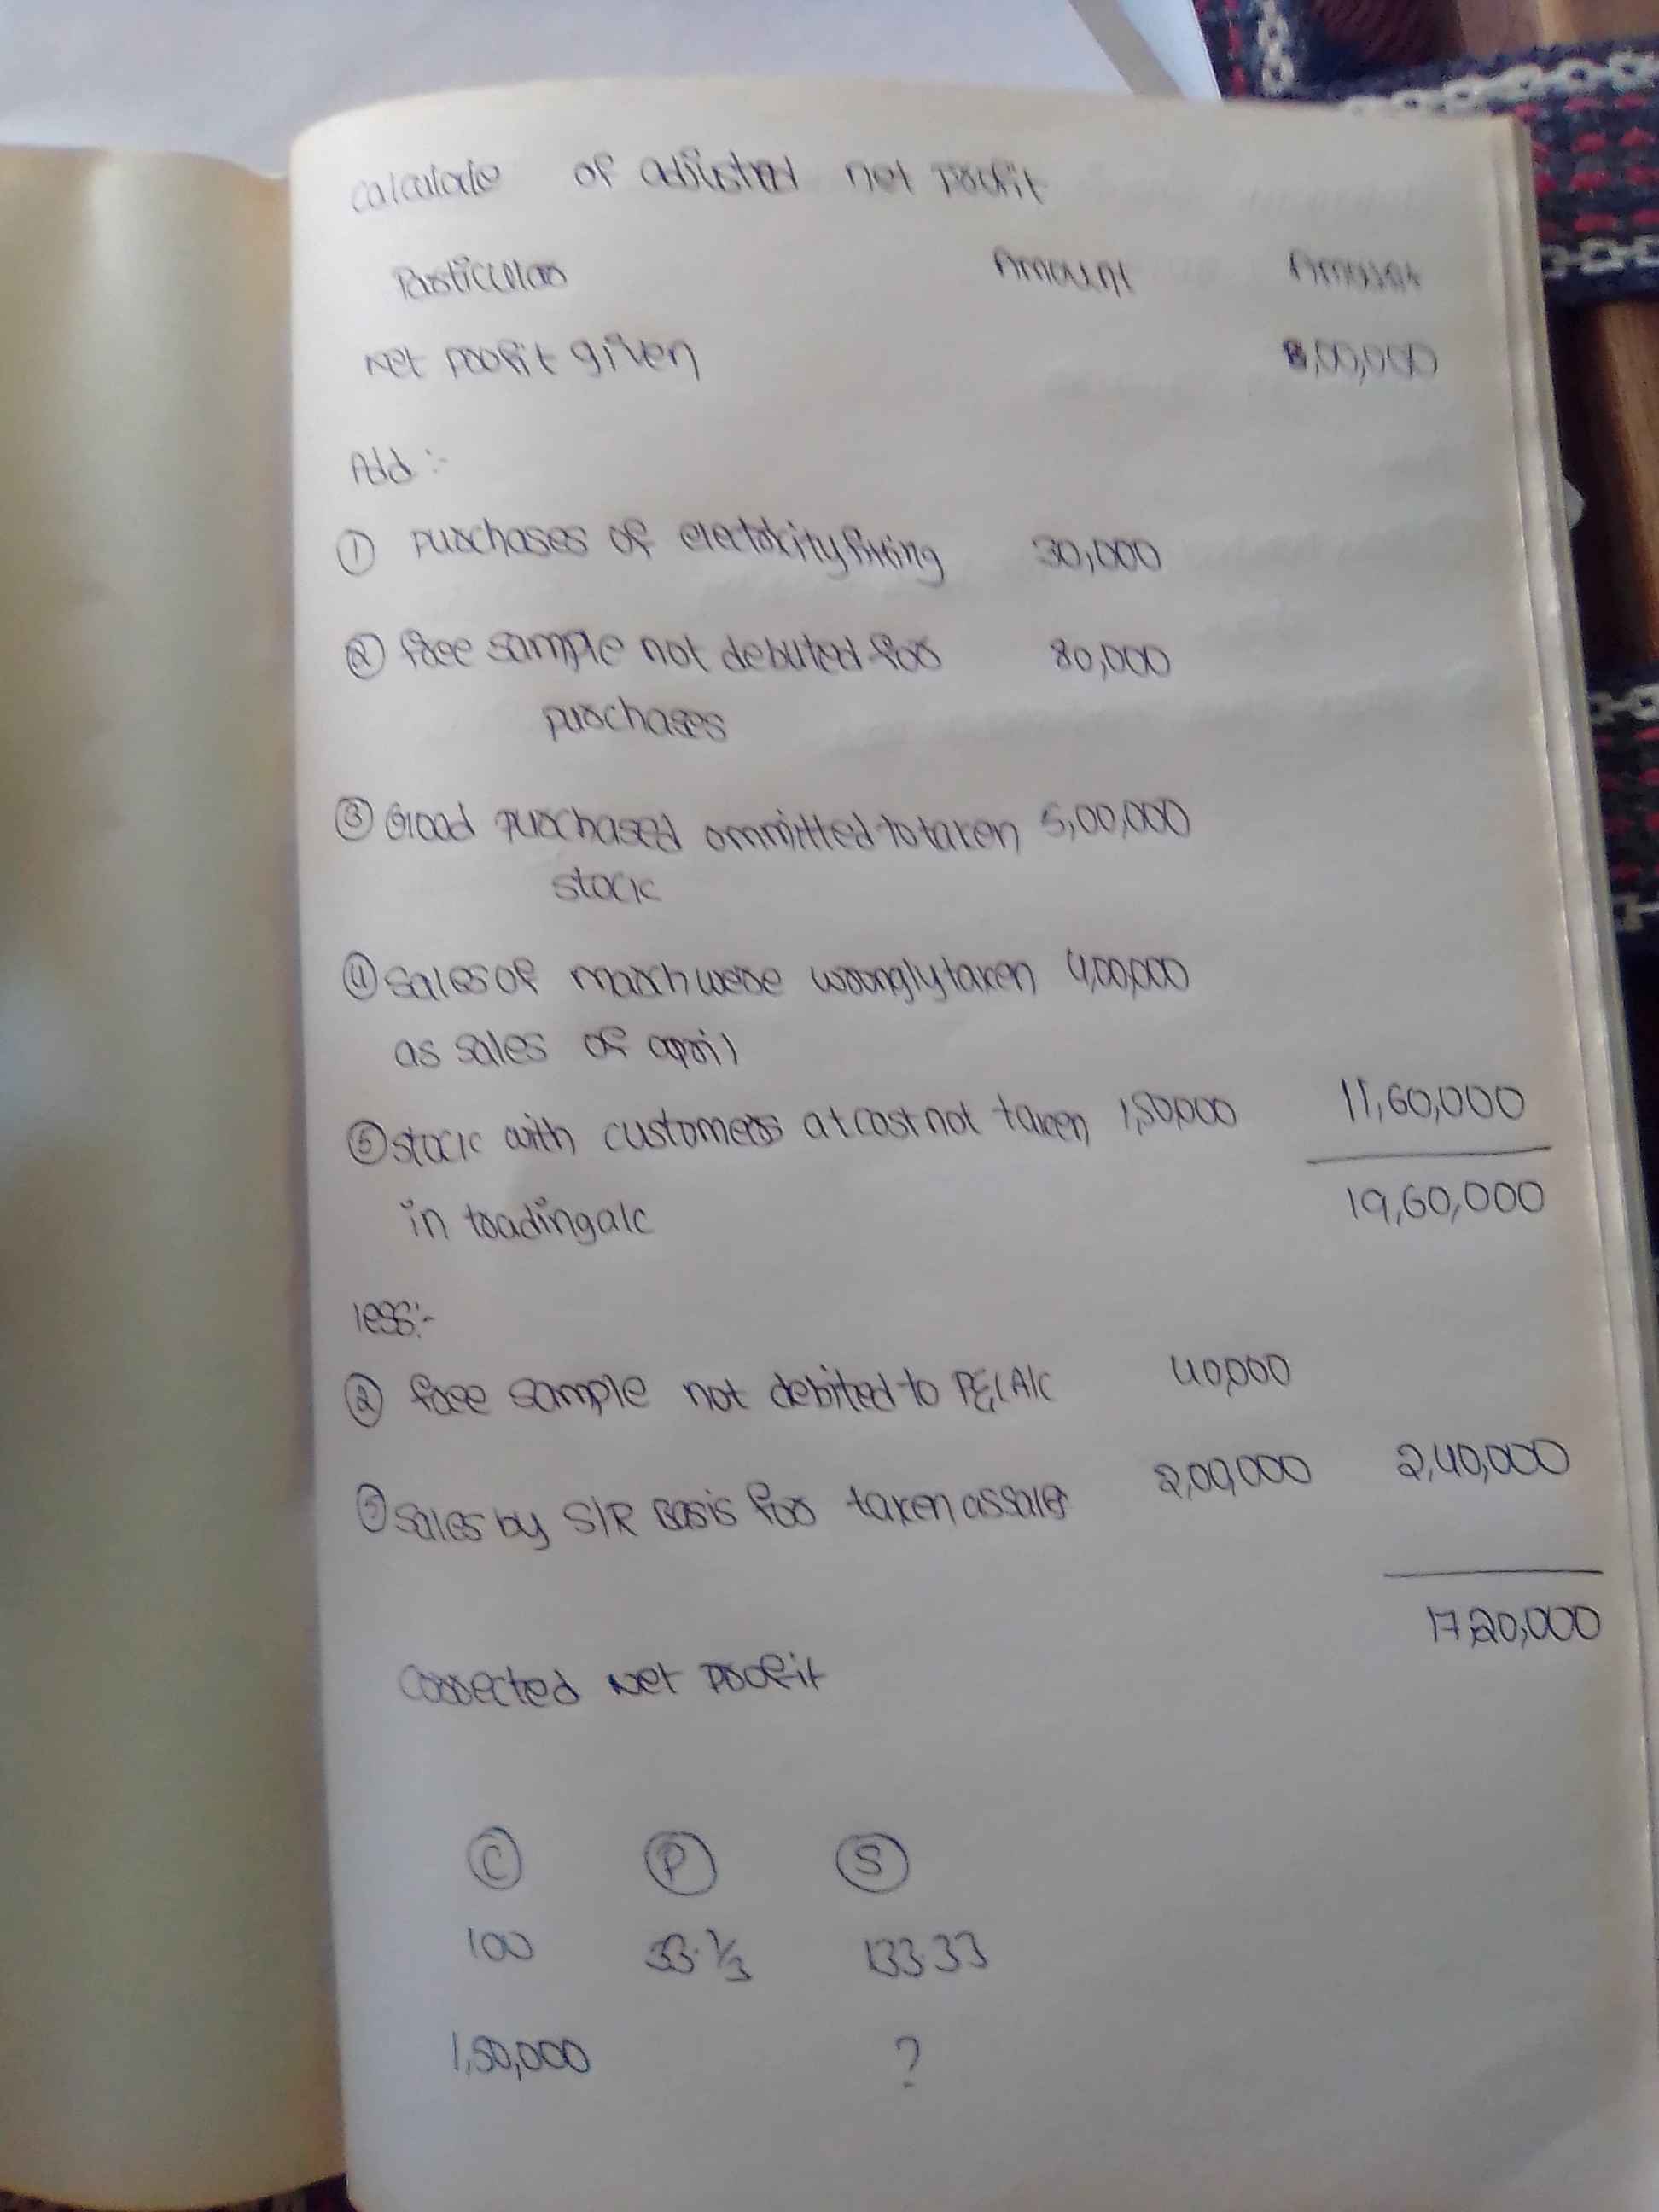 calculate of adjusted net profit
Particulars Amount Amount
Net profit given 8,00,000
Add :-
① purchases of electricity fixing 30,000
② free sample not debuted for 80,000
purchases
③ Good purchased ommitted to taken 5,00,000
stock
④ sales of march were wrongly taken 4,00,000
as sales of april
⑤ stock with customers at cost not taken 1,50,000 11,60,000
in trading a/c 19,60,000
less:-
② free sample not debited to P&L A/c 40,000
⑤ sales by S/R Basis for taken as sales 2,00,000 2,40,000
17,20,000
Corrected Net Profit
C P S
100 33·1/3 133.33
1,50,000 ?